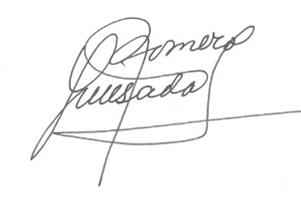 Romero
Quesada